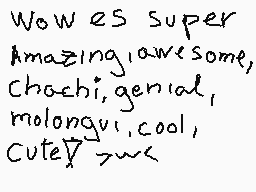 Wow es super
Amazing, awesome,
Chachi, genial,
molongui, cool,
cute▽ >w<